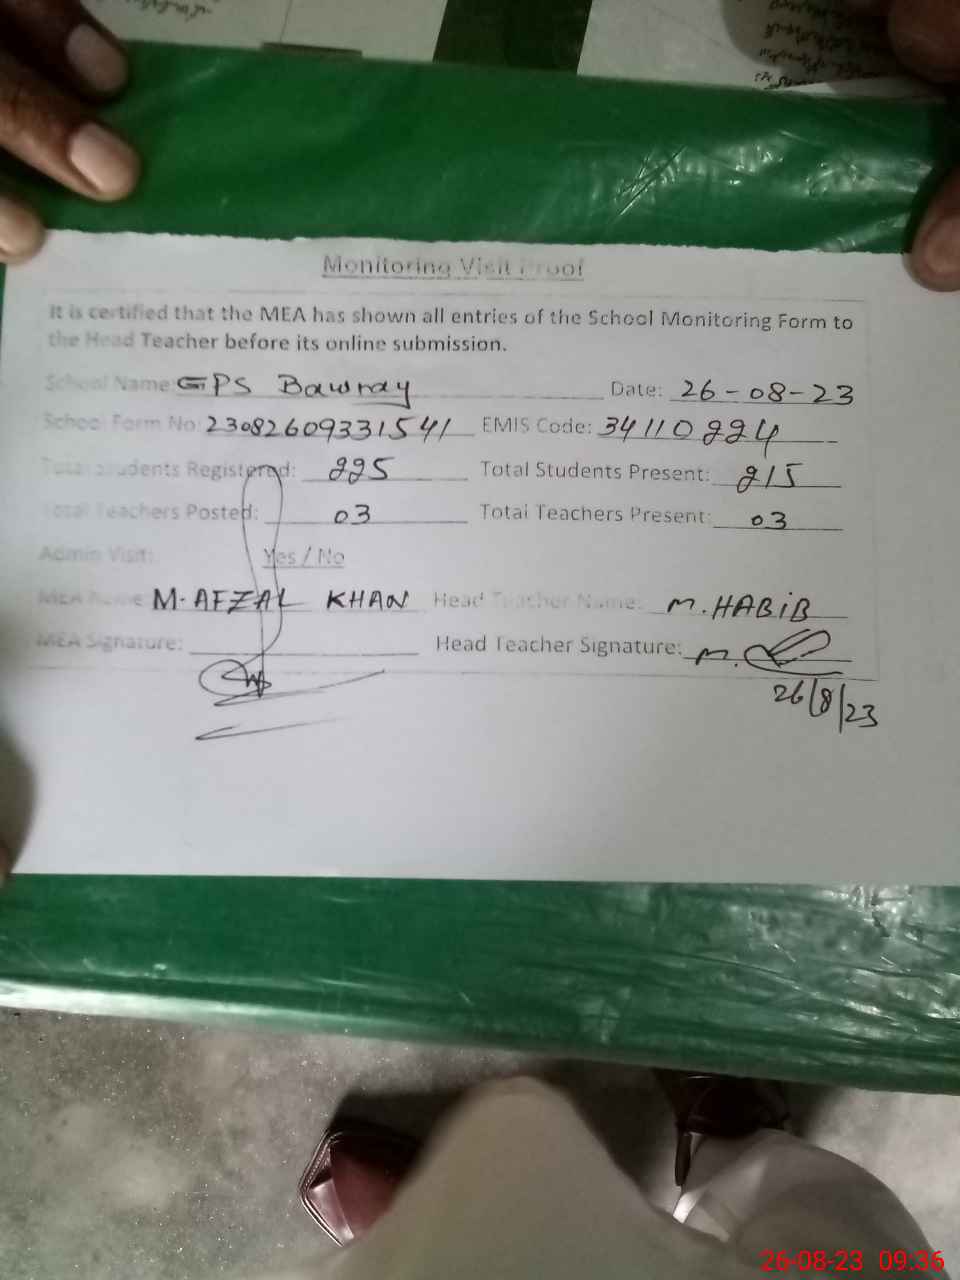 Monitoring Visit Proof
It is certified that the MEA has shown all entries of the School Monitoring Form to
the Head Teacher before its online submission.
School Name: GPS Bawray Date: 26-08-23
School Form No: 23082609331541 EMIS Code: 34110224
Total Students Registered: 225 Total Students Present: 215
Total Teachers Posted: 03 Total Teachers Present: 03
Admin Visit: Yes / No
MEA Name M. AFZAL KHAN Head Teacher Name: M. HABIB
MEA Signature: Head Teacher Signature: M.
26/8/23
26-08-23 09:36